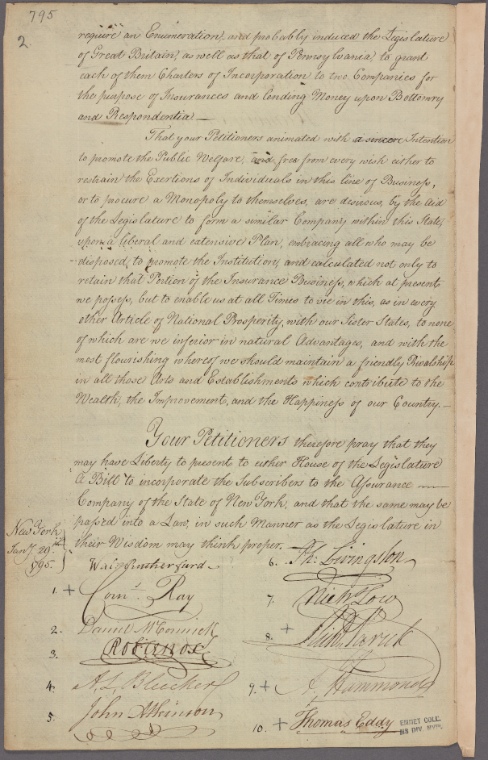 795
2
require an Enumeration, and probably induced the Legislature
of Great Britain, as well as that of Pennsylvania, to grant
each of them Charters of Incorporation to two Companies for
the purpose of Insurances and lending Money upon Bottomry
and Respondentia —
That your Petitioners animated with a sincere Intention
to promote the Public Welfare, and free from every wish either to
restrain the Exertions of Individuals in this line of Business,
or to procure a Monopoly to themselves, are desirous, by the Aid
of the Legislature to form a similar Company within this State,
upon a liberal and extensive Plan, embracing all who may be
disposed, to promote the Institution, and calculated not only to
retain that Portion of the Insurance Business, which at present
we possess, but to enable us at all Times to vie in this, as in every
other Article of National Prosperity, with our Sister States, to none
of which are we inferior in natural Advantages, and with the
most flourishing whereof we should maintain a friendly Rivalship
in all those Arts and Establishments which contribute to the
Wealth, the Improvement, and the Happiness of our Country. —
Your Petitioners therefore pray that they
may have Liberty to present to either House of the Legislature
a Bill to incorporate the Subscribers to the Assurance
Company of the State of New York, and that the same may be
passed into a Law, in such Manner as the Legislature in
their Wisdom may think proper.
New York
Jany 29th
795.
Rutherfurd
1. + Corns. Ray
2. Daniel McCormick
3.
4. A. L. Bleecker
5. John Atkinson
6. Ph: Livingston
7. Nichs. Low
8. + Richd. Varick
9. + A Hammond
10. + Thomas Eddy
EMMET COLL.